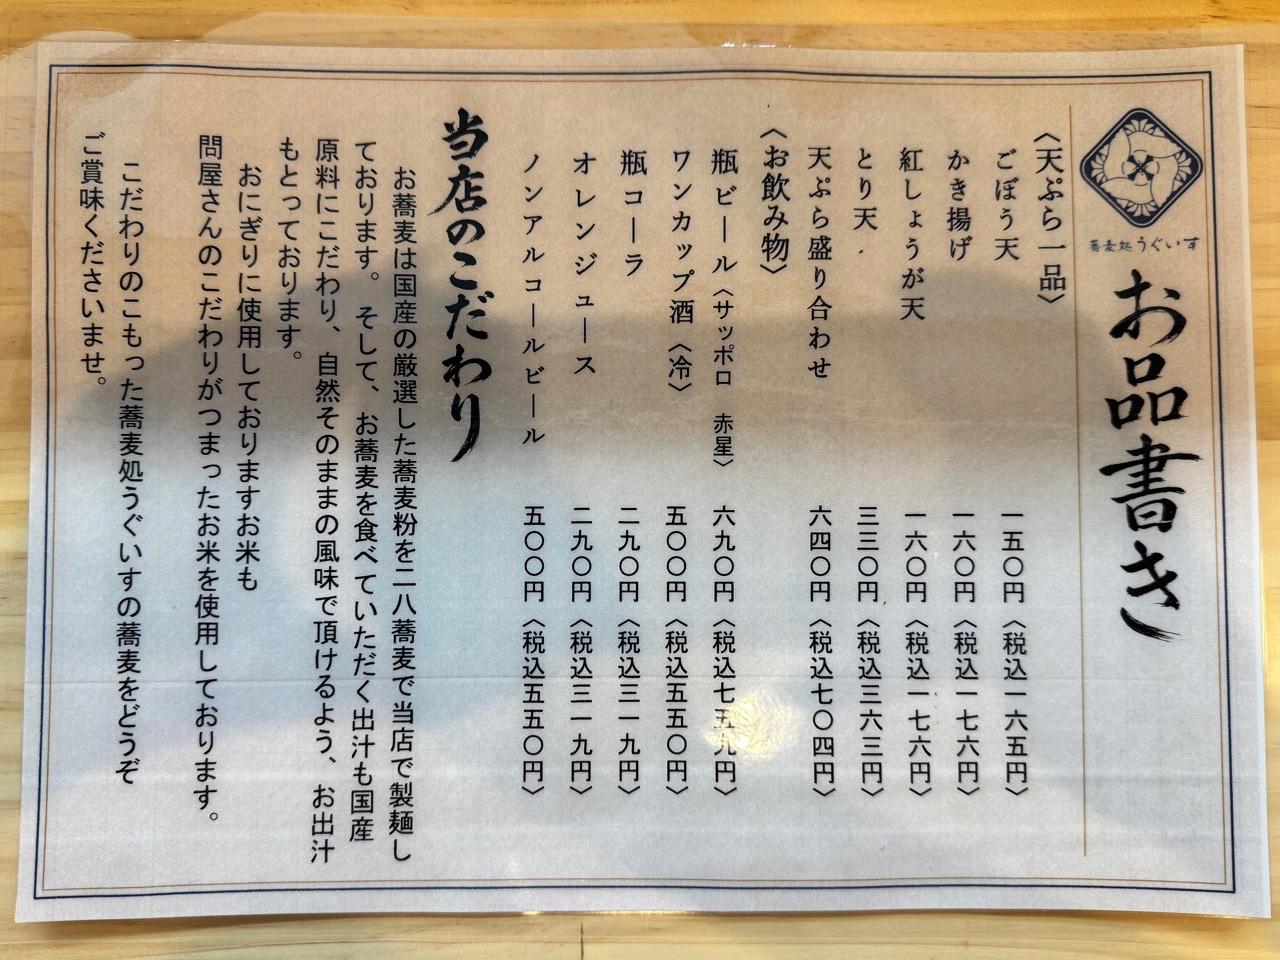 蕎麦処うぐいす
お品書き
〈天ぷら一品〉
ごぼう天　一五〇円〈税込一六五円〉
かき揚げ　一六〇円〈税込一七六円〉
紅しょうが天　一六〇円〈税込一七六円〉
とり天　三三〇円〈税込三六三円〉
天ぷら盛り合わせ　六四〇円〈税込七〇四円〉
〈お飲み物〉
瓶ビール〈サッポロ　赤星〉　六九〇円〈税込七五九円〉
ワンカップ酒〈冷〉　五〇〇円〈税込五五〇円〉
瓶コーラ　二九〇円〈税込三一九円〉
オレンジュース　二九〇円〈税込三一九円〉
ノンアルコールビール　五〇〇円〈税込五五〇円〉
当店のこだわり
お蕎麦は国産の厳選した蕎麦粉を二八蕎麦で当店で製麺し
ております。そして、お蕎麦を食べていただく出汁も国産
原料にこだわり、自然そのままの風味で頂けるよう、お出汁
もとっております。
おにぎりに使用しておりますお米も
問屋さんのこだわりがつまったお米を使用しております。
こだわりのこもった蕎麦処うぐいすの蕎麦をどうぞ
ご賞味くださいませ。